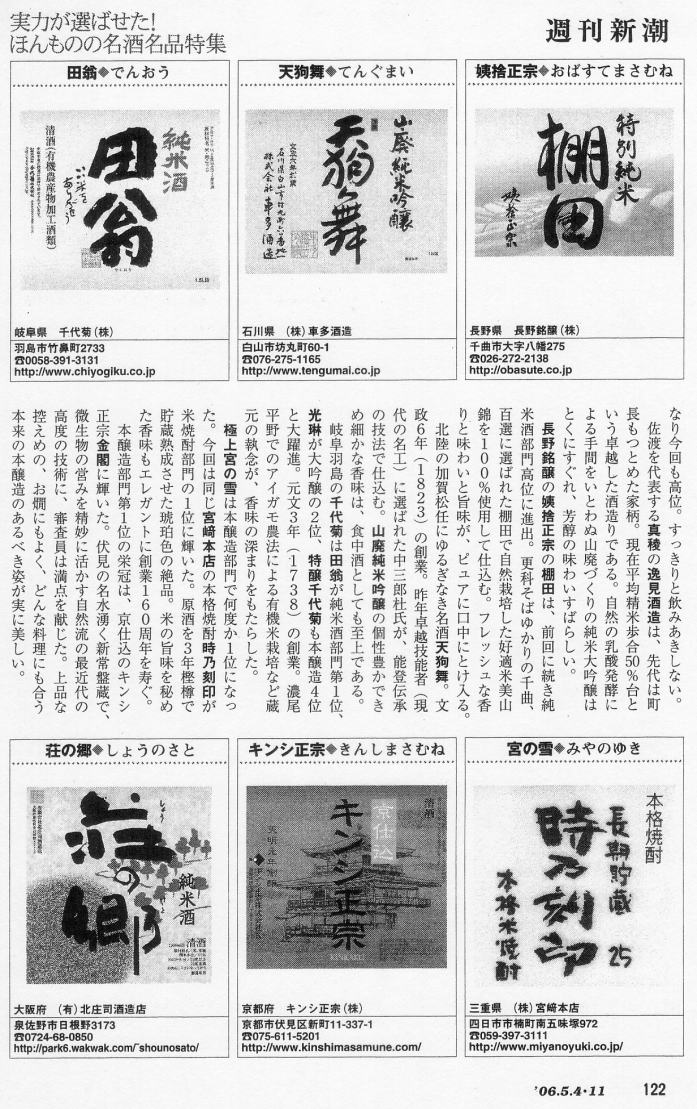 実力が選ばせた!
ほんものの名酒名品特集
週刊新潮
姨捨正宗◆おばすてまさむね
特別純米
棚田
姨捨正宗
長野県 長野銘醸(株)
千曲市大字八幡275
☎026-272-2138
http://obasute.co.jp
天狗舞◆てんぐまい
山廃純米吟醸
天狗舞
石川県白山市坊丸町六〇番地一
株式会社 車多酒造
石川県 (株)車多酒造
白山市坊丸町60-1
☎076-275-1165
http://www.tengumai.co.jp
田翁◆でんおう
純米酒
田翁
でんおう
お米を
ありがとう
清酒(有機農産物加工酒類)
岐阜県 千代菊(株)
羽島市竹鼻町2733
☎0058-391-3131
http://www.chiyogiku.co.jp
なり今回も高位。すっきりと飲みあきしない。
佐渡を代表する真稜の逸見酒造は、先代は町
長もつとめた家柄。現在平均精米歩合50%台と
いう卓越した酒造りである。自然の乳酸発酵に
よる手間をいとわぬ山廃づくりの純米大吟醸は
とくにすぐれ、芳醇の味わいすばらしい。
長野銘醸の姨捨正宗の棚田は、前回に続き純
米酒部門高位に進出。更科そばゆかりの千曲、
百選に選ばれた棚田で自然栽培した好適米美山
錦を100%使用して仕込む。フレッシュな香
りと味わいと旨味が、ピュアに口中にとけ入る。
北陸の加賀松任にゆるぎなき名酒天狗舞。文
政6年(1823)の創業。昨年卓越技能者(現
代の名工)に選ばれた中三郎杜氏が、能登伝承
の技法で仕込む。山廃純米吟醸の個性豊かでき
め細かな香味は、食中酒としても至上である。
岐阜羽島の千代菊は田翁が純米酒部門第1位、
光琳が大吟醸の2位、特醸千代菊も本醸造4位
と大躍進。元文3年(1738)の創業。濃尾
平野でのアイガモ農法による有機米栽培など蔵
元の執念が、香味の深まりをもたらした。
極上宮の雪は本醸造部門で何度か1位になっ
た。今回は同じ宮﨑本店の本格焼酎時乃刻印が
米焼酎部門の1位に輝いた。原酒を3年樫樽で
貯蔵熟成させた琥珀色の絶品。米の旨味を秘め
た香味もエレガントに創業160周年を寿ぐ。
本醸造部門第1位の栄冠は、京仕込のキンシ
正宗金閣に輝いた。伏見の名水湧く新常盤蔵で、
微生物の営みを精妙に活かす自然流の最近代の
高度の技術に、審査員は満点を献じた。上品な
控えめの、お燗にもよく、どんな料理にも合う
本来の本醸造のあるべき姿が実に美しい。
宮の雪◆みやのゆき
本格焼酎
長期貯蔵 25
時乃刻印
本格米焼酎
三重県 (株)宮﨑本店
四日市市楠町南五味塚972
☎059-397-3111
http://www.miyanoyuki.co.jp/
キンシ正宗◆きんしまさむね
清酒
京仕込
キンシ正宗
KINKAKU
京都府 キンシ正宗(株)
京都市伏見区新町11-337-1
☎075-611-5201
http://www.kinshimasamune.com/
荘の郷◆しょうのさと
しょうのさと
荘の郷
純米酒
清酒
大阪府 (有)北庄司酒造店
泉佐野市日根野3173
☎0724-68-0850
http://park6.wakwak.com/~shounosato/
'06.5.4・11 122